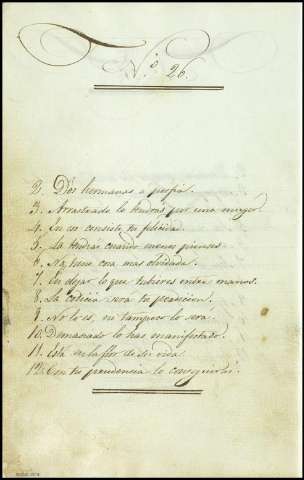 N.º 26.
2. Dos hermanas a porfia.
3. Arrastrado lo tendrás por una muger.
4. En no consiste tu felicidad.
5. La tendrás cuando menos pienses.
6. No, tiene cosa mas olvidada.
7. En dejar lo que tubieres entre manos.
8. La codicia será tu perdicion.
9. No lo es, ni tampoco lo será.
10. Demasiado lo has manifestado.
11. Está en la flor de su vida.
12. Con tu prudencia lo conseguirás.